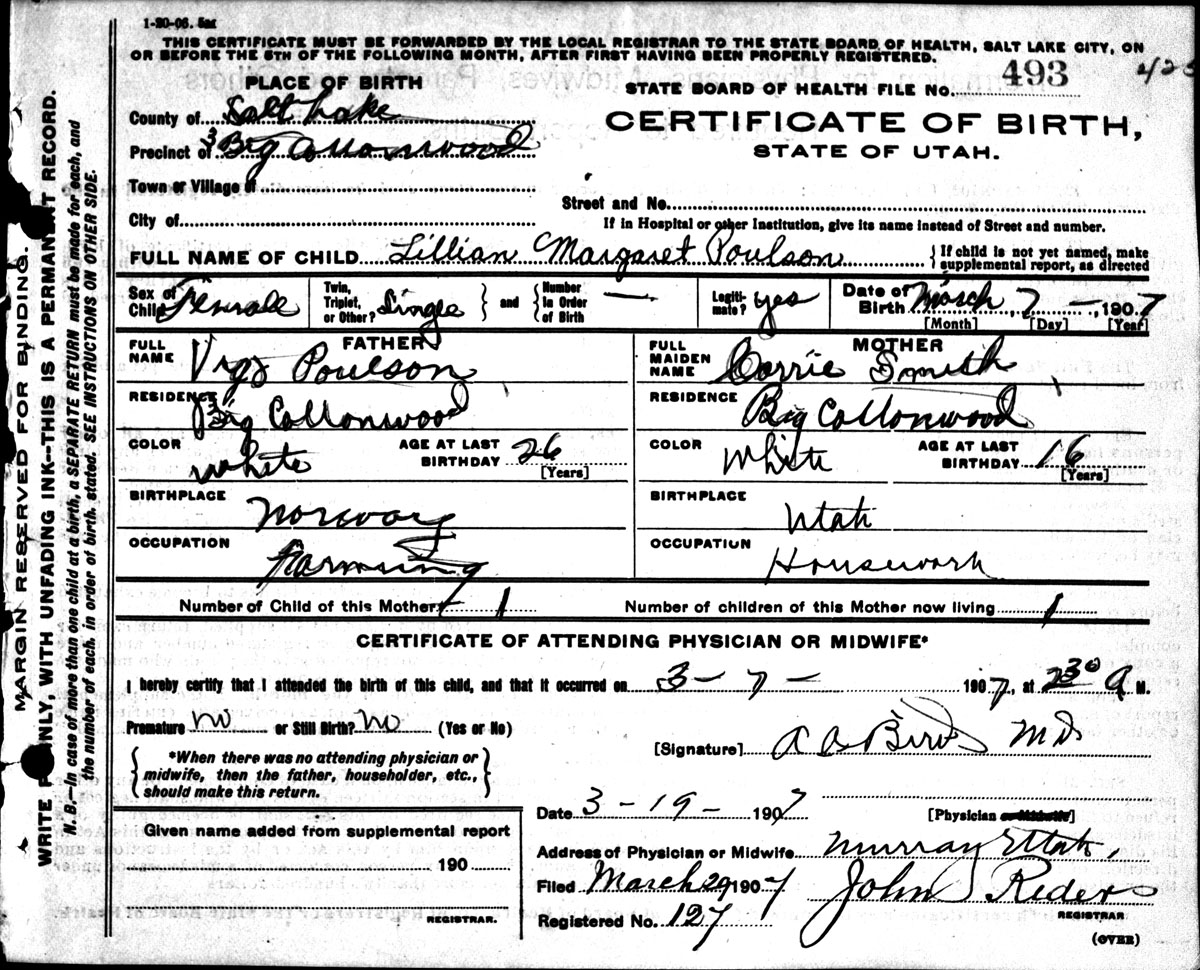 1-20-06. 5m
THIS CERTIFICATE MUST BE FORWARDED BY THE LOCAL REGISTRAR TO THE STATE BOARD OF HEALTH, SALT LAKE CITY, ON
OR BEFORE THE 5TH OF THE FOLLOWING MONTH, AFTER FIRST HAVING BEEN PROPERLY REGISTERED.
PLACE OF BIRTH
STATE BOARD OF HEALTH FILE No. 493
County of Salt Lake
CERTIFICATE OF BIRTH,
Precinct of Big Cottonwood
STATE OF UTAH.
Town or Village of
Street and No.
City of
If in Hospital or other Institution, give its name instead of Street and number.
FULL NAME OF CHILD Lillian Margaret Poulson { If child is not yet named, make supplemental report, as directed
Sex of Child Female Twin, Triplet, or Other? Single } and { Number in Order of Birth — Legitimate? yes Date of Birth March 7 –, 1907
[Month] [Day] [Year]
FATHER
FULL NAME Poulson
RESIDENCE Big Cottonwood
COLOR White AGE AT LAST BIRTHDAY 26
[Years]
BIRTHPLACE Norway
OCCUPATION Farming
MOTHER
FULL MAIDEN NAME Corrie Smith
RESIDENCE Big Cottonwood
COLOR White AGE AT LAST BIRTHDAY 16
[Years]
BIRTHPLACE Utah
OCCUPATION Housework
Number of Child of this Mother 1 Number of children of this Mother now living 1
CERTIFICATE OF ATTENDING PHYSICIAN OR MIDWIFE*
I hereby certify that I attended the birth of this child, and that it occurred on 3 – 7 – 1907, at 2 30 A M.
Premature no or Still Birth? no (Yes or No)
[Signature] M D
*When there was no attending physician or
midwife, then the father, householder, etc.,
should make this return.
Date 3 – 19 – 1907 [Physician or Midwife]
Address of Physician or Midwife Murray Utah,
Filed March 29 1907 John Reder
REGISTRAR
Registered No. 127
(OVER)
Given name added from supplemental report
190
REGISTRAR.
MARGIN RESERVED FOR BINDING.
WRITE PLAINLY, WITH UNFADING INK--THIS IS A PERMANENT RECORD.
N.B.—In case of more than one child at a birth, a SEPARATE RETURN must be made for each, and
the number of each, in order of birth, stated. SEE INSTRUCTIONS ON OTHER SIDE.